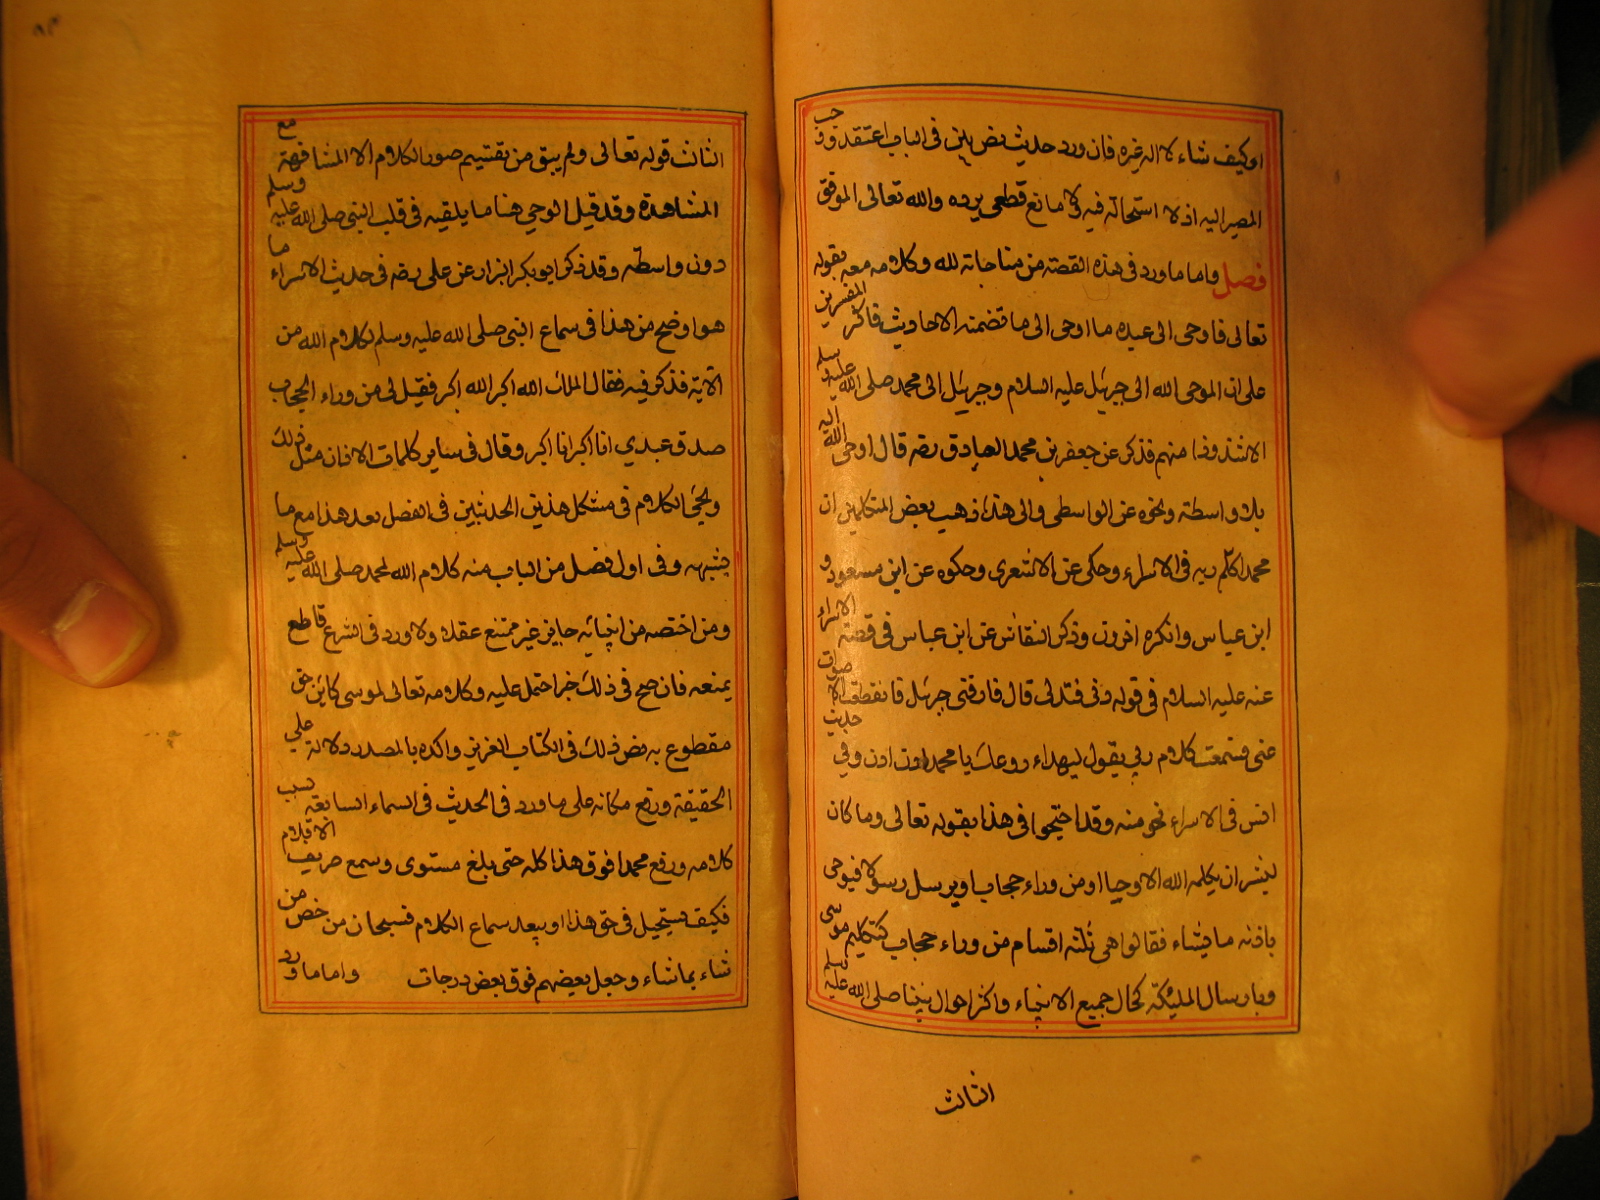 او كيف شاء لا اله غيره فان ورد حديث نص بين فى الباب اعتقد ووجب
المصير اليه اذ لا استحالة فيه ولا مانع قطعى يرده والله تعالى الموفق
فصل واما ما ورد فى هذه القصة من مناجاته لله وكلامه معه بقوله
تعالى فاوحى الى عبده ما اوحى الى ما تضمنه الاحاديث فاكثر المفسرين
على ان الموحى الله الى جبريل عليه السلام وجبريل الى محمد صلى الله عليه وسلم
الا شذوذا منهم فذكر عن جعفر بن محمد الصادق رضه قال اوحى الله اليه
بلا واسطة ونحوه عن الواسطى والى هذا ذهب بعض المتكلمين ان
محمدا كلم ربه فى الاسراء وحكى عن الاشعرى وحكوه عن ابن مسعود و
ابن عباس وانكره اخرون وذكر النقاش عن ابن عباس فى قصة الاسراء
عنه عليه السلام فى قوله دنى فتدلى قال فارقنى جبريل فانقطعت الاصوات
عنى فسمعت كلام ربى يقول ليهداء روعك يا محمد ادن ادن وفى حديث
انس فى الاسراء نحو منه وقد احتجوا فى هذا بقوله تعالى وما كان
لبشر ان يكلمه الله الا وحيا او من وراء حجاب او يرسل رسولا فيوحى
باذنه ما يشاء فقالوا هى ثلثة اقسام من وراء حجاب كتكليم موسى
وبارسال المليكة كحال جميع الانبياء واكثر احوال نبينا صلى الله عليه وسلم
الثالث
الثالث قوله تعالى ولم يبق من تقسيم صور الكلام الا المشافهة مع
المشاهدة وقد قيل الوحى هنا ما يلقيه فى قلب النبى صلى الله عليه وسلم
دون واسطة وقد ذكر ابو بكر البزار عن على رضه فى حديث الاسراء ما
هو اوضح من هذا فى سماع النبى صلى الله عليه وسلم لكلام الله من
الاية فذكر فيه فقال الملك الله اكبر الله اكبر فقيل لى من وراء الحجاب
صدق عبدي انا اكبر انا اكبر وقال فى ساير كلمات الاذان مثل ذلك
ويجئ الكلام فى مشكل هذين الحديثين فى الفصل بعد هذا مع ما
يشبهه وفى اول فصل من الباب منه كلام الله لمحمد صلى الله عليه وسلم
ومن اختصه من انبيائه جايز غير ممتنع عقلا ولا ورد فى الشرع قاطع
يمنعه فان صح فى ذلك خبر احتمل عليه وكلامه تعالى لموسى كاين حق
مقطوع به نص ذلك فى الكتاب العزيز واكده بالمصدر دلالة على
الحقيقة ورفع مكانه على ما ورد فى الحديث فى السماء السابعة بسبب
كلامه ورفع محمدا فوق هذا كله حتى بلغ مستوى وسمع صريف الاقلام
فكيف يستحيل فى حق هذا او يبعد سماع الكلام فسبحان من خص من
شاء بما شاء وجعل بعضهم فوق بعض درجات واما ما ورد